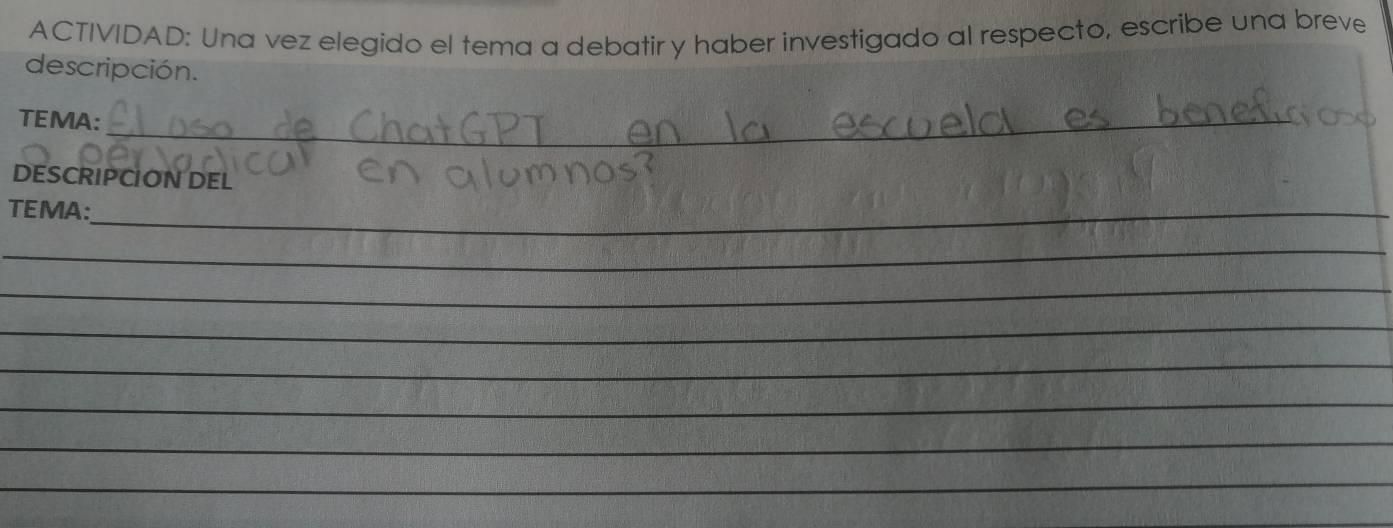 ACTIVIDAD: Una vez elegido el tema a debatir y haber investigado al respecto, escribe una breve
descripción.
TEMA: El uso de ChatGPT en la escuela es beneficioso
o perjadicar en alumnos?
DESCRIPCION DEL
TEMA: